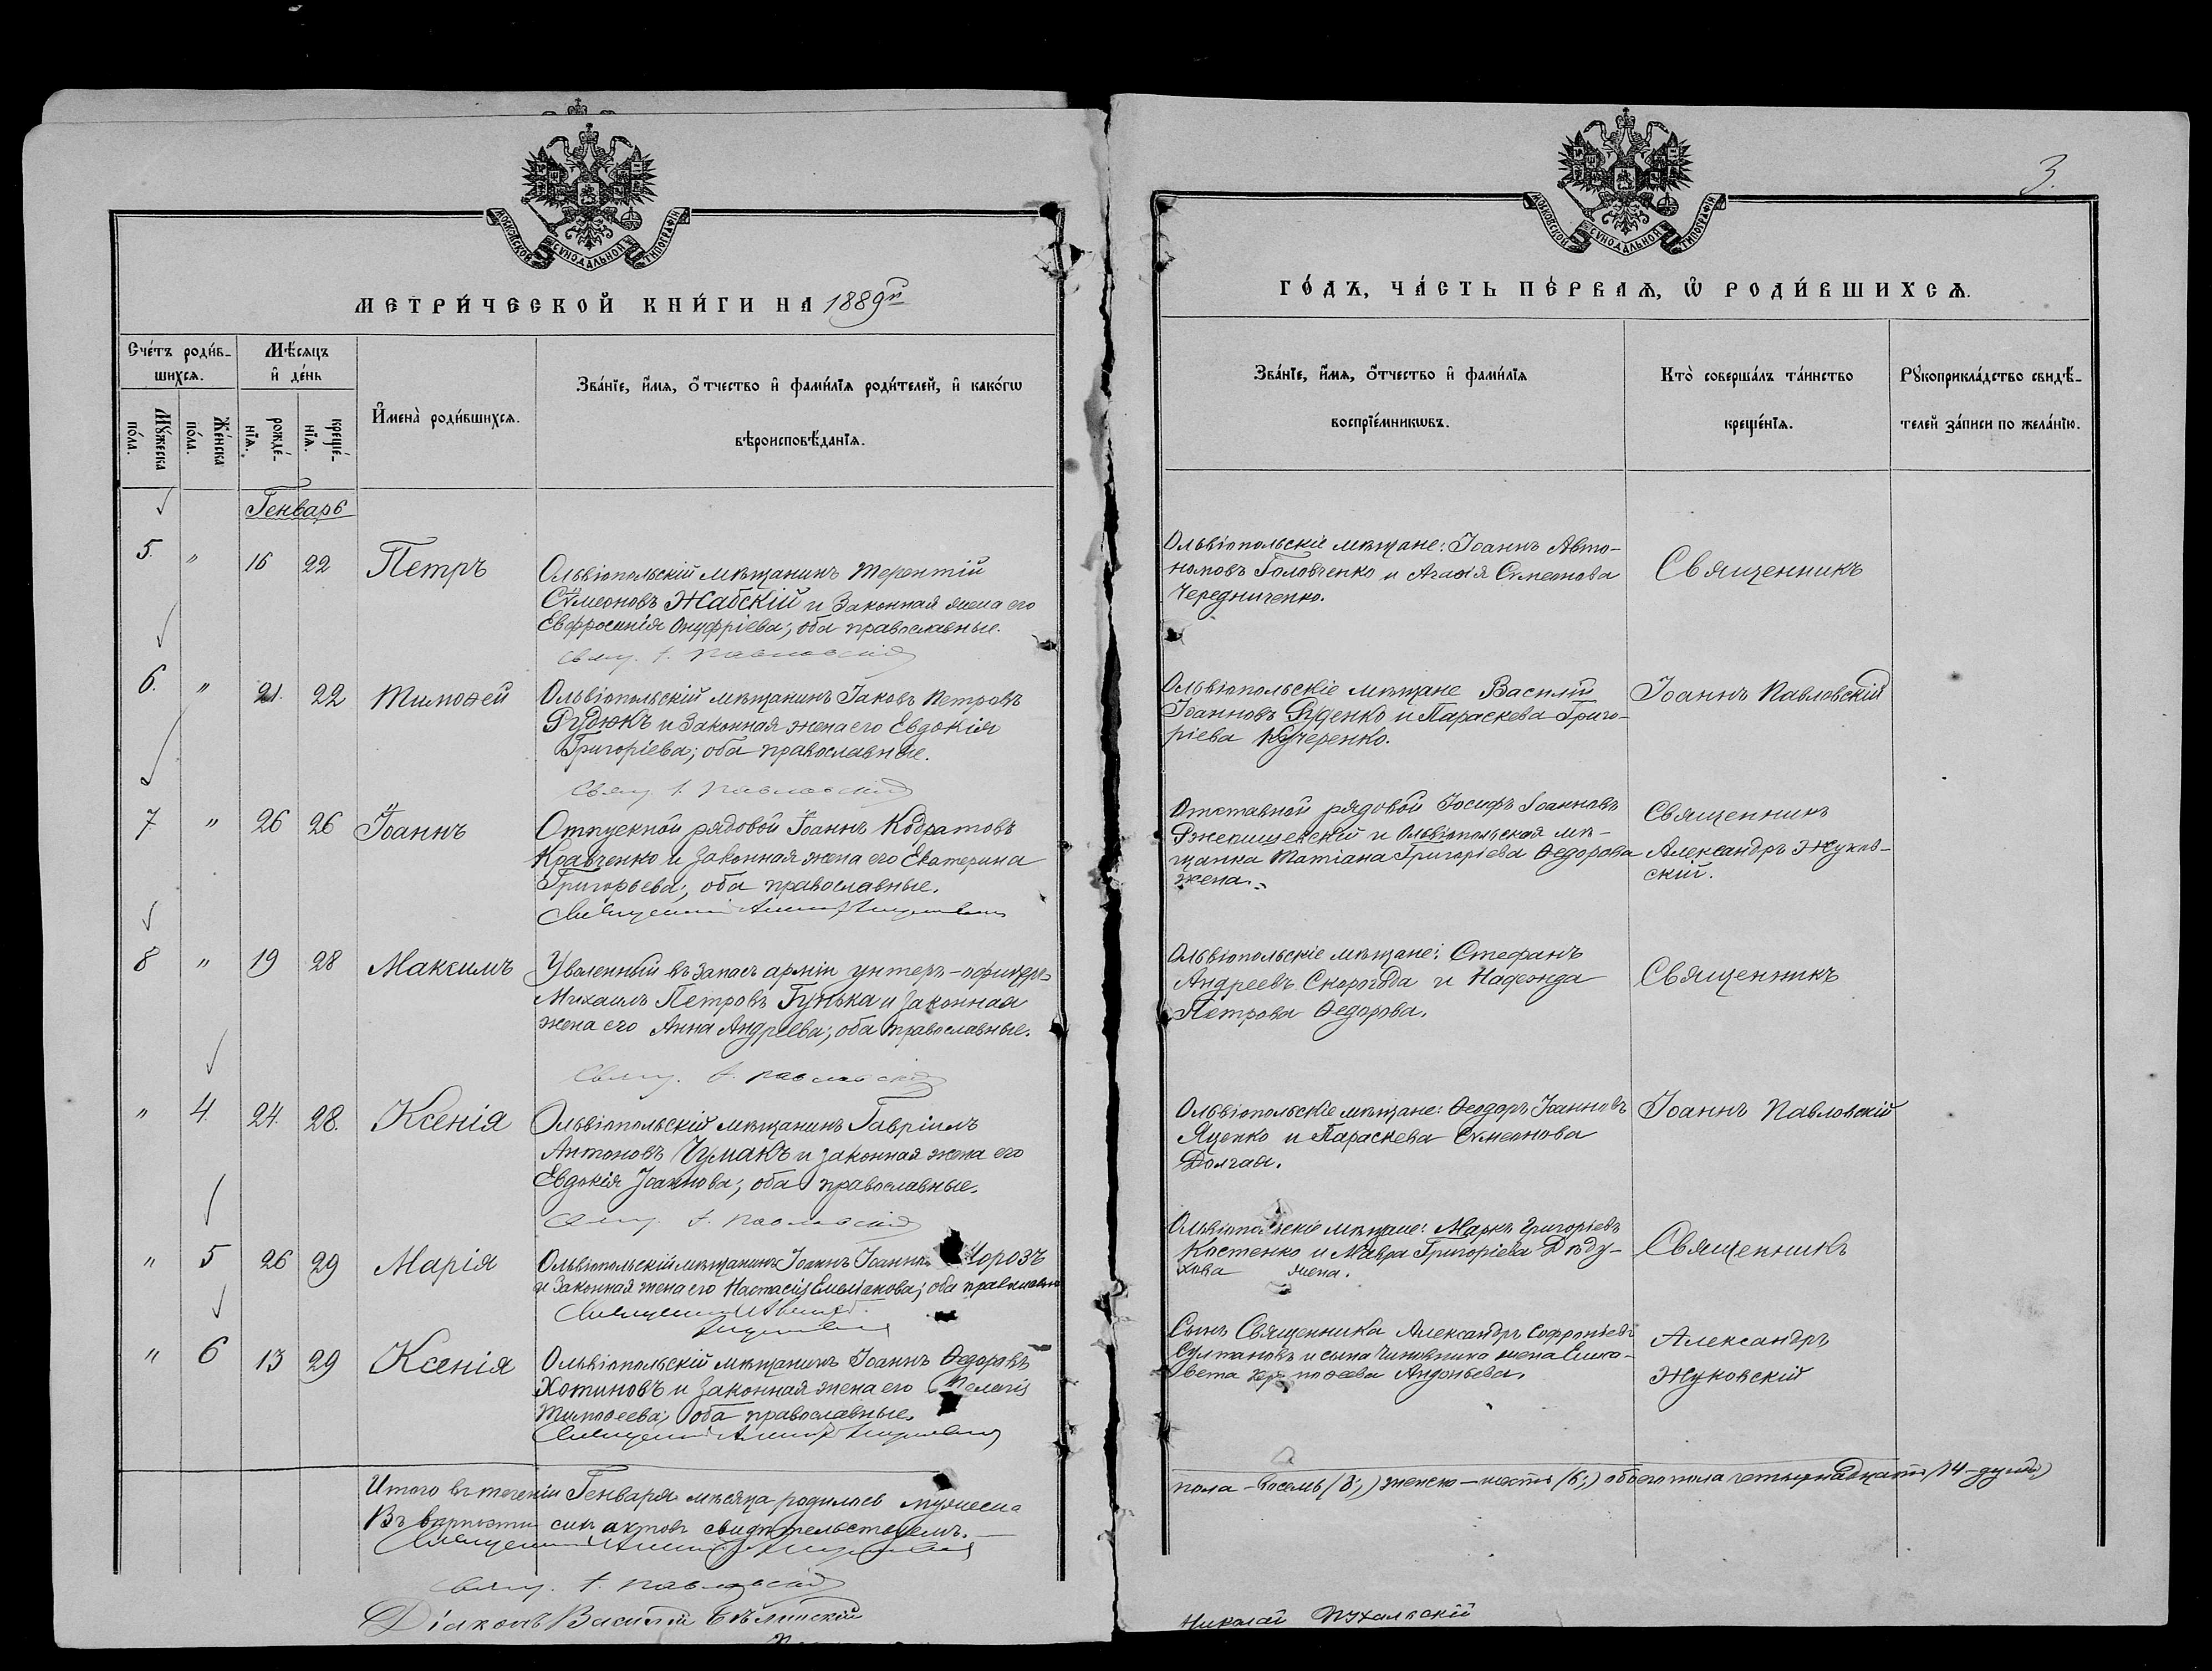 МОСКОВСКОЙ СѴНОДАЛЬНОЙ ТИПОГРАФІИ
МЕТРИ́ЧЕСКОЙ КНИ́ГИ НА 1889й
Сче́тъ роди́в-
шихсѧ.
Мꙋ́жеска
по́ла.
Же́нска
по́ла.
Мѣ́сяцъ
и҆ де́нь
рожде́-
нїѧ.
креще́-
нїѧ.
И҆мена̀ роди́вшихсѧ.
Зва́нїе, и҆́мѧ, ѻ҆́тчество и҆ фами́лїѧ роди́телей, и҆ како́гѡ
вѣроисповѣ́данїѧ.
Генварь
5. " 16 22 Петръ
Ольвіопольскій мѣщанинъ Терентій
Сѵмеоновъ Жабскій и законная жена его
Евфросинія Онуфріева; оба православные.
Свящ. І. Павловскій
6. " 21. 22 Тимоѳей
Ольвіопольскій мѣщанинъ Іаковъ Петровъ
Рудюкъ и законная жена его Евдокія
Григоріева; оба православные.
Свящ. І. Павловскій
7 " 26 26 Іоаннъ
Отпускной рядовой Іоаннъ Кодратовъ
Кравченко и законная жена его Екатерина
Григорьева; оба православные.
8 " 19 28 Максимъ
Уволенный въ запасъ арміи унтеръ-офицеръ
Михаилъ Петровъ Гунька и законная
жена его Анна Андреева; оба православные.
Свящ. І. Павловскій
" 4. 24. 28. Ксенія
Ольвіопольскій мѣщанинъ Гавріилъ
Антоновъ Чумакъ и законная жена его
Евдокія Іоаннова; оба православные.
Свящ. І. Павловскій
" 5 26 29 Марія
Ольвіопольскій мѣщанинъ Іоаннъ Іоаннов Морозъ
и законная жена его Настасія Емеліанова; оба православны
" 6 13 29 Ксенія
Ольвіопольскій мѣщанинъ Іоаннъ Ѳедоровъ
Хотиновъ и законная жена его Пелагія
Тимоѳеева; оба православные.
Итого въ теченіи Генваря мѣсяца родилось мужеска
Въ вѣрности сихъ актовъ свидѣтельствуемъ.
Свящ. І. Павловскій
Діаконъ Василій Бѣлинскій
3.
МОСКОВСКОЙ СѴНОДАЛЬНОЙ ТИПОГРАФІИ
ГО́ДЪ, ЧА́СТЬ ПЕ́РВАѦ, Ѡ҆ РОДИ́ВШИХСѦ.
Зва́нїе, и҆́мѧ, ѻ҆́тчество и҆ фами́лїѧ
воспрїе́мникѡвъ.
Кто̀ соверша́лъ та́инство
креще́нїѧ.
Рꙋкоприкла́дство свидѣ́-
телей за́писи по жела́нїю.
Ольвіопольскіе мѣщане: Іоаннъ Авто-
номовъ Головченко и Агаѳія Сѵмеонова
Чередниченко.
Священникъ
Ольвіопольскіе мѣщане Василій
Іоанновъ Руденко и Параскева Григо-
ріева Кучеренко.
Іоаннъ Павловскій
Отставной рядовой Іосифъ Іоанновъ
Ржепишевскій и Ольвіопольская мѣ-
щанка Татіана Григоріева Ѳедорова
жена.
Священникъ
Александръ Жуков-
скій.
Ольвіопольскіе мѣщане: Стефанъ
Андреевъ Скорогода и Надежда
Петрова Ѳедорова.
Священникъ
Ольвіопольскіе мѣщане: Ѳеодоръ Іоанновъ
Яценко и Параскева Сѵмеонова
Долгая.
Іоаннъ Павловскій
Ольвіопольскіе мѣщане: Маркъ Григоріевъ
Костенко и Мавра Григоріева Дѣду-
хова жена.
Священникъ
Сынъ Священника Александръ Софроніевъ
Султановъ и сына чиновника жена Елиса-
вета Андоньева.
Александръ
Жуковскій
пола - восемь (8;) женска - шесть (6;) обоего пола четырнадцать (14-душъ)
Николай Пухальскій